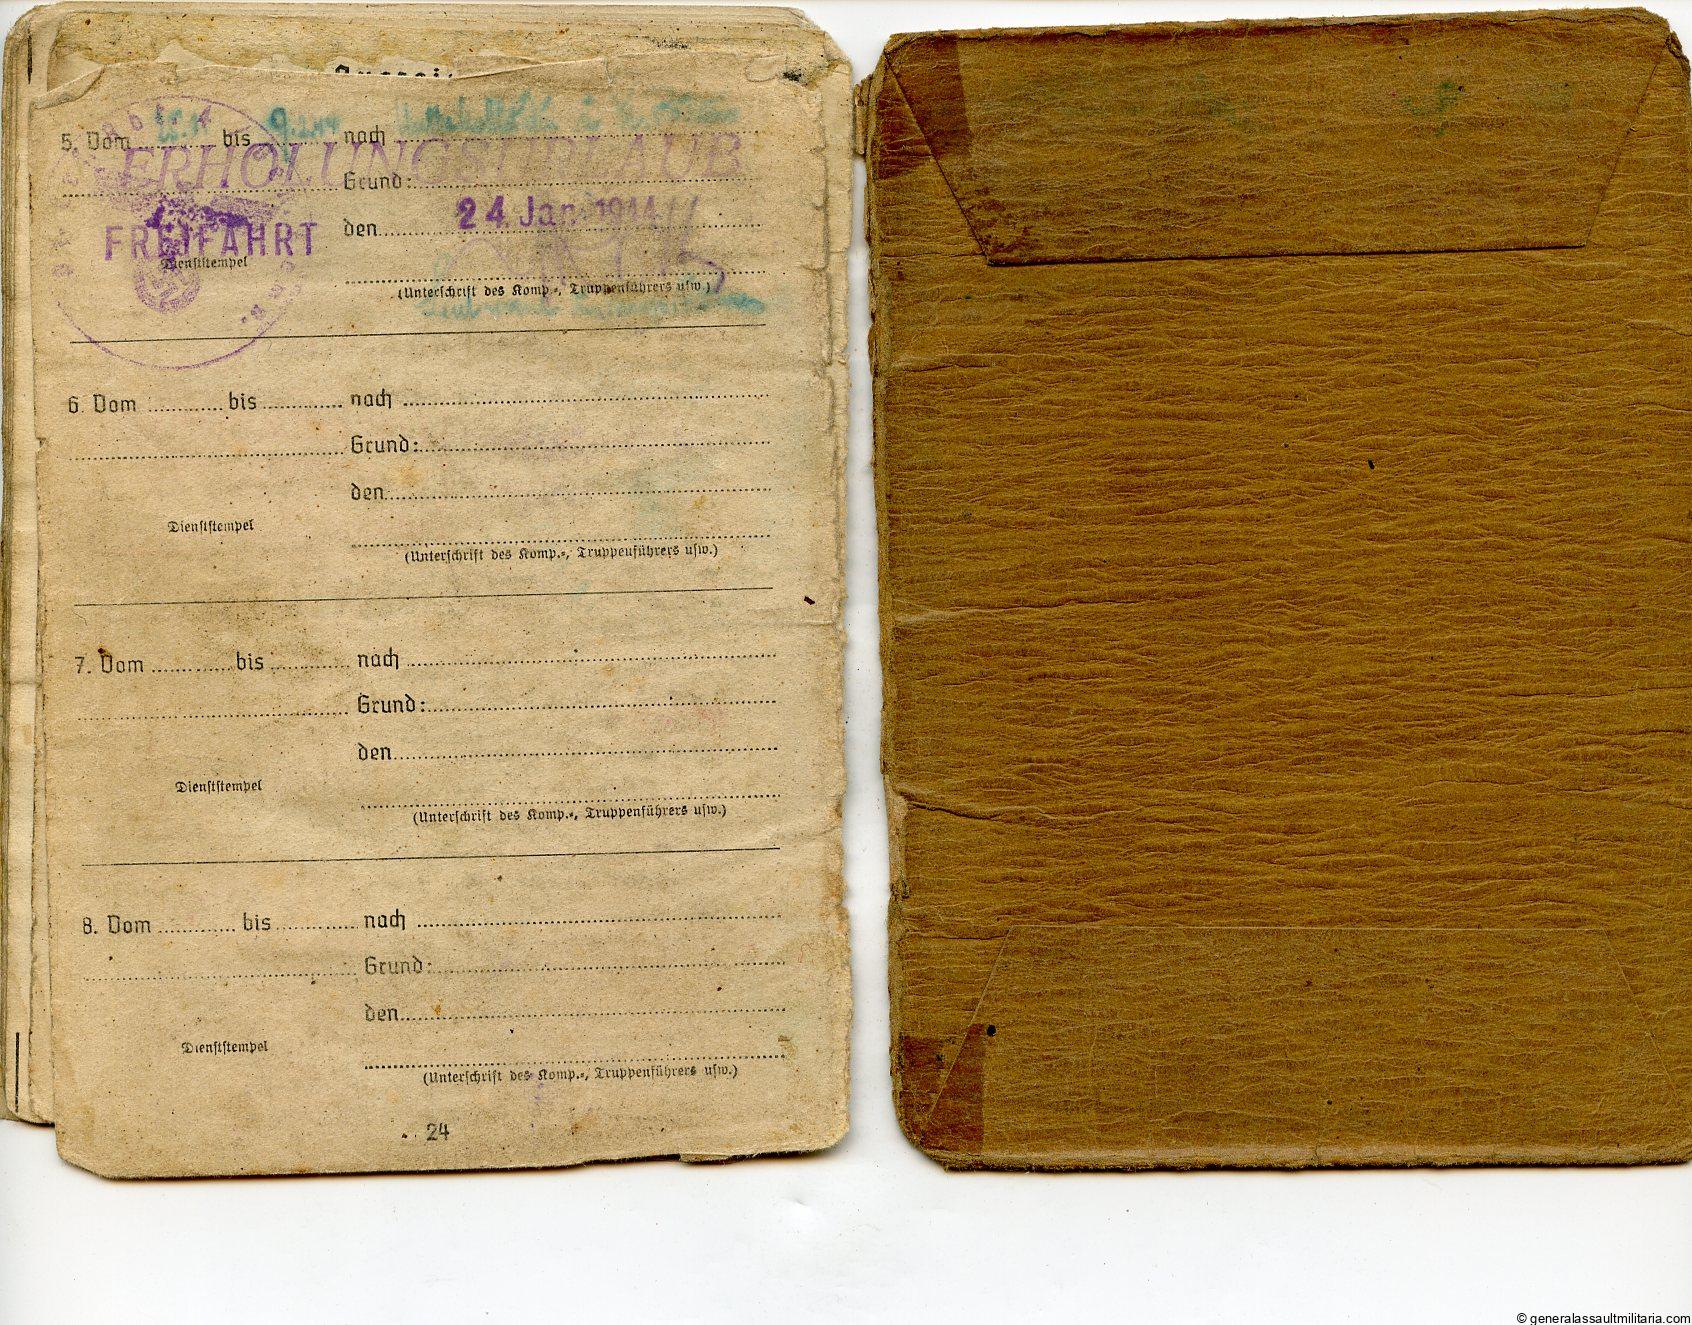 5. Vom bis nach
ERHOLUNGSURLAUB
Grund:
den 24. Jan. 1944
FREIFAHRT
Dienststempel
(Unterschrift des Komp.-, Truppenführers usw.)
6. Vom bis nach
Grund:
den
Dienststempel
(Unterschrift des Komp.-, Truppenführers usw.)
7. Vom bis nach
Grund:
den
Dienststempel
(Unterschrift des Komp.-, Truppenführers usw.)
8. Vom bis nach
Grund:
den
Dienststempel
(Unterschrift des Komp.-, Truppenführers usw.)
24
© generalassaultmilitaria.com